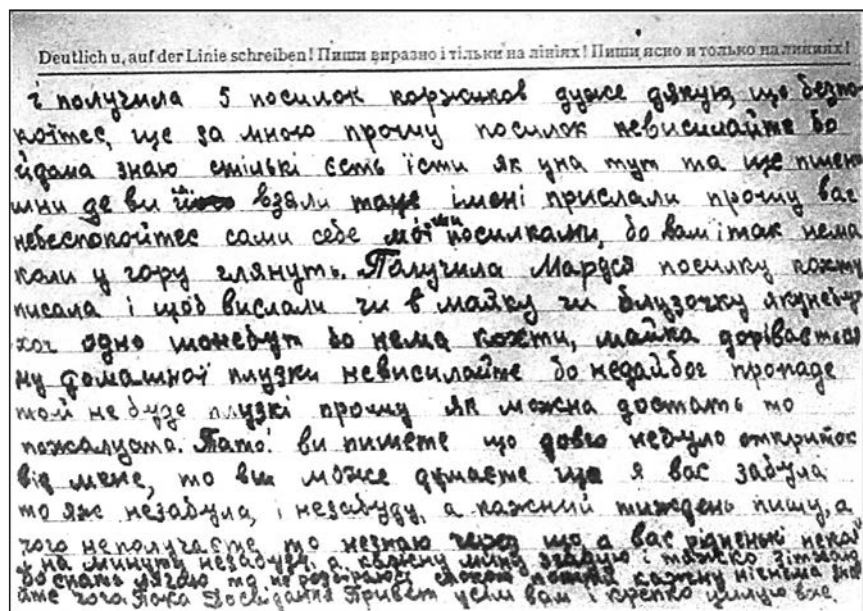 Deutlich u. auf der Linie schreiben! Пиши виразно і тільки на лініях! Пиши ясно и только на линиях!
і получила 5 посилок коржиков дуже дякую, що безпо
коїтес, ще за мною прошу посилок невисилайте бо
йдома знаю стількі єсть їсти як уна тут та ще пшен
шни де ви взяли та ще імені прислали прошу вас
небеспокойтес сами себе моїми посилками, бо вам і так нема
коли у гору глянуть. Палучила Маруся посилку кохту
писала і щоб вислали чи в майку чи блузочку якунебуд
хоч одно шонебут бо нема кохти, майка дорівається
ну домашної плузки невисилайте бо недайбог пропаде
той не буде плузкі прошу як можна достать то
пожалуста. Тато! ви пишете що довго небуло откриток
від мене, то ви може думаєте що я вас забула
то яж незабула, і незабуду, а кажний тиждень пишу, а
чого неполучаєте то незнаю через що а вас рідненькі
на минуту незабуду, а кажну мину згадую і тяжко зітхаю
бо спать лягаю та не розбіраюсі кажну ніч
чого. Пока Досвідання Привет усім вам і крепко цилую вас.